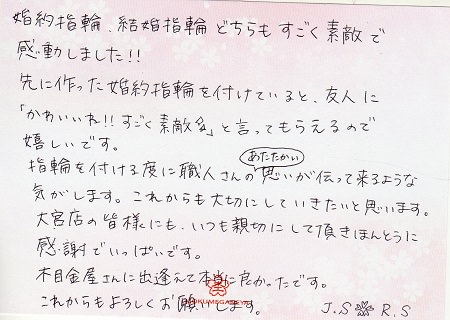 婚約指輪、結婚指輪どちらもすごく素敵で
感動しました!!
先に作った婚約指輪を付けていると、友人に
「かわいいね!!すごく素敵〜」と言ってもらえるので
嬉しいです。
指輪を付ける度に職人さんのあたたかい思いが伝って来るような
気がします。これからも大切にしていきたいと思います。
大宮店の皆様にも、いつも親切にして頂きほんとうに
感謝でいっぱいです。
木目金屋さんに出逢えて本当に良かったです。
これからもよろしくお願いします。 J.S R.S
MOKUMEGANEYA